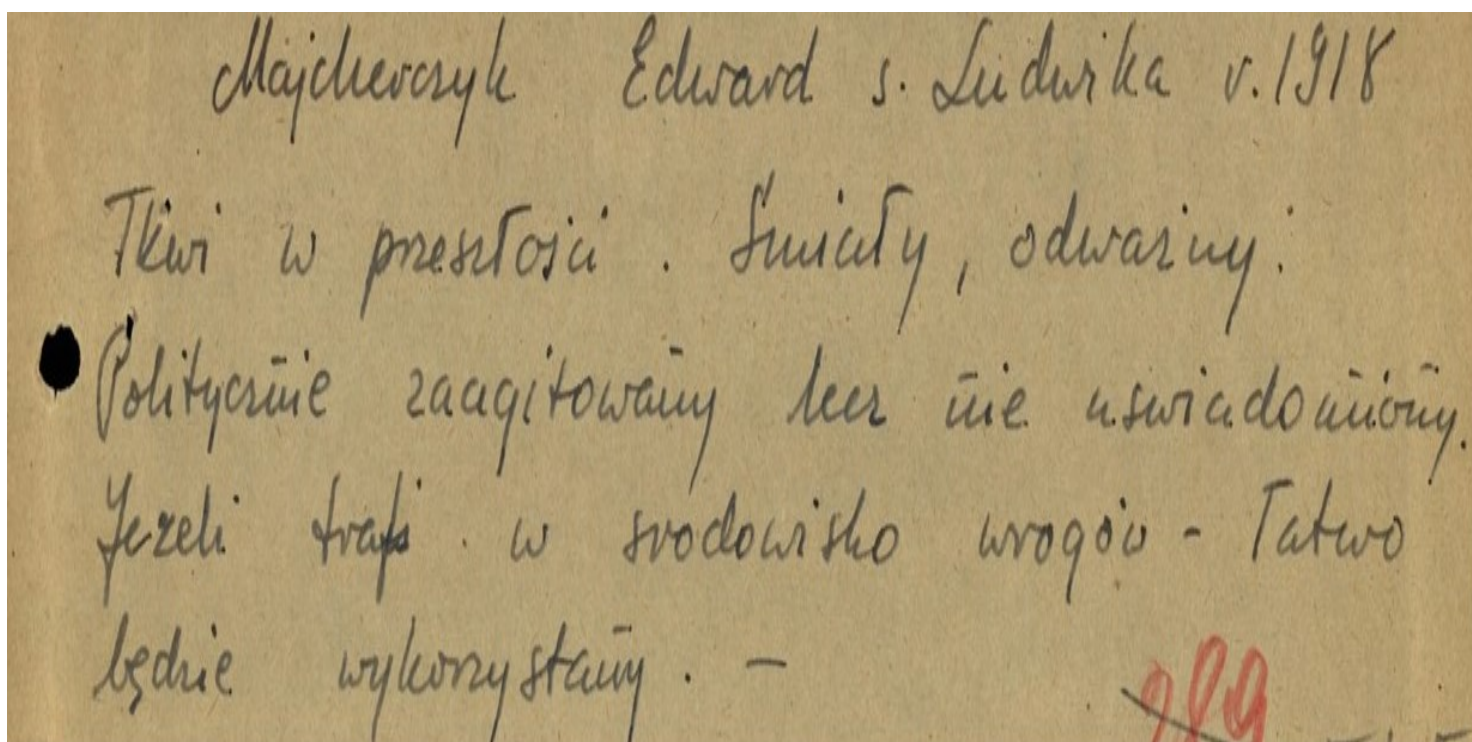 Majcherczyk Edward s. Ludwika r. 1918
Tkwi w przeszłości. Śmiały, odważny.
Politycznie zaagitowany lecz nie uświadomiony.
Jeżeli trafi w środowisko wrogów - łatwo
będzie wykorzystany. -
299